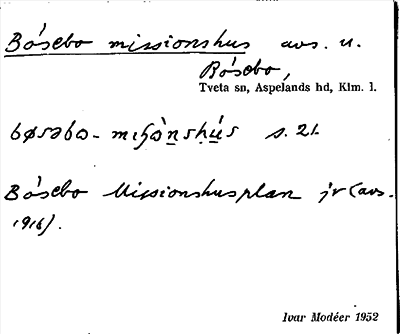 Bósebo missionshus avs. u.
Bósebo,
Tveta sn, Aspelands hd, Klm. l.
bøsəbo- miʃònshús s. 21.
Bósebo Missionshusplan jr (avs.
1916).
Ivar Modéer 1952